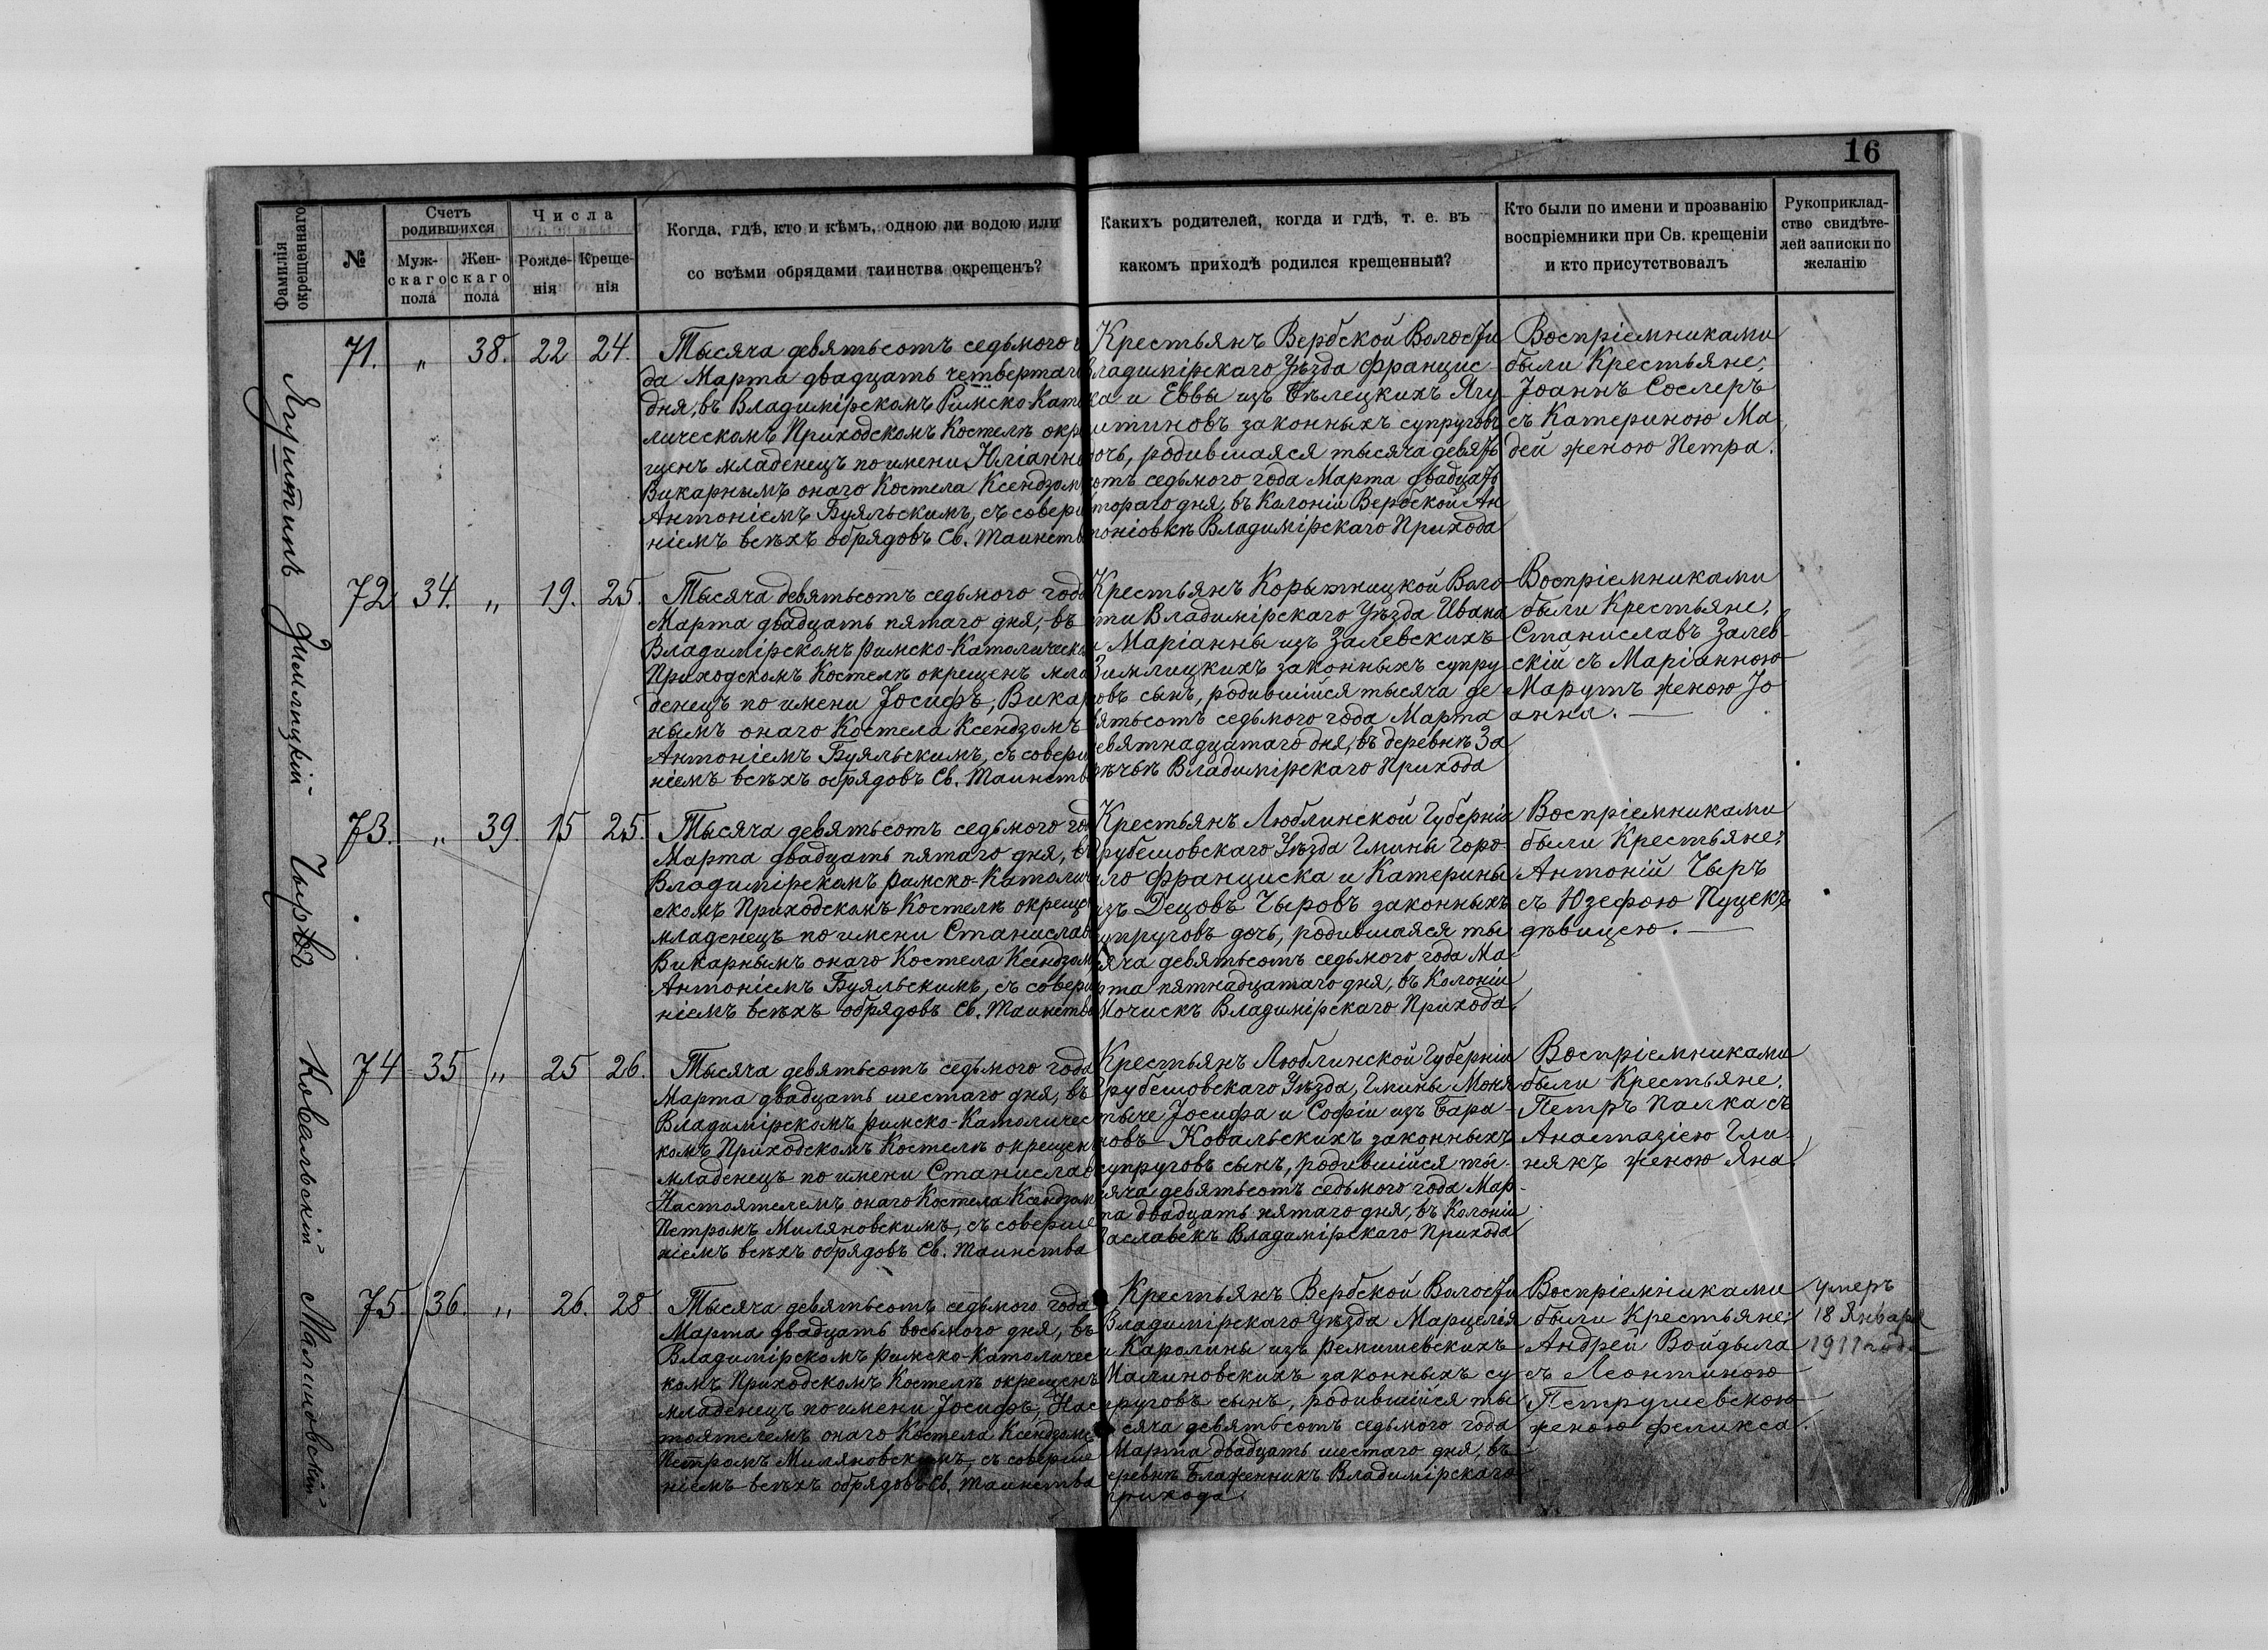 16
Фамилія окрещеннаго
№
Счетъ родившихся
Муж-скаго пола
Жен-скаго пола
Числа
Рожде-нія
Креще-нія
Когда, гдѣ, кто и кѣмъ, одною ли водою или
со всѣми обрядами таинства окрещенъ?
Какихъ родителей, когда и гдѣ, т. е. въ
какомъ приходѣ родился крещенный?
Кто были по имени и прозванію
воспріемники при Св. крещеніи
и кто присутствовалъ
Рукоприклад-
ство свидѣте-
лей записки по
желанію
71. " 38. 22 24.
Тысяча девятьсотъ седьмого
да Марта двадцать четвертаго
дня, въ Владимірскомъ Римско-Като
лическомъ Приходскомъ Костелѣ окре
щенъ младенецъ по имени Юліанна
Викарнымъ онаго Костела Ксендзомъ
Антоніемъ Буяльскимъ, съ соверш
ніемъ всѣхъ обрядовъ Св. Таинств
Крестьянъ Вербской Волости
Владимірскаго Уѣзда Францис-
ка и Еввы изъ Бѣлецкихъ Ягу-
штиновъ законныхъ супруговъ
дочь, родившаяся тысяча девять
отъ седьмого года Марта двадцать
втораго дня, въ Колоніи Вербской Ан
тоніовкѣ Владимірскаго Прихода
Воспріемниками
были Крестьяне:
Іоаннъ Сослеръ
съ Катериною Ма-
дей женою Петра.
72 34. " 19. 25.
Тысяча девятьсотъ седьмого года
Марта двадцать пятаго дня, въ
Владимірскомъ Римско-Католическо
Приходскомъ Костелѣ окрещенъ мла
денецъ по имени Іосифъ, Викар
нымъ онаго Костела Ксендзомъ
Антоніемъ Буяльскимъ, съ соверш
ніемъ всѣхъ обрядовъ Св. Таинств
Крестьянъ Корытницкой Воло-
сти Владимірскаго Уѣзда Ивана
и Маріанны изъ Залевскихъ
Зимлицкихъ законныхъ супру-
овъ сынъ, родившійся тысяча де
вятьсотъ седьмого года Марта
девятнадцатаго дня, въ деревнѣ За
рѣчьѣ Владимірскаго Прихода
Воспріемниками
были Крестьяне:
Станиславъ Залев-
скій съ Маріанною
Марутъ женою Іо
анна.
73. " 39. 15 25.
Тысяча девятьсотъ седьмого го
Марта двадцать пятаго дня, въ
Владимірскомъ Римско-Католич
скомъ Приходскомъ Костелѣ окреще
младенецъ по имени Станислав
Викарнымъ онаго Костела Ксендзом
Антоніемъ Буяльскимъ, съ соверш
ніемъ всѣхъ обрядовъ Св. Таинства
Крестьянъ Люблинской Губерніи
Грубешовскаго Уѣзда Гмины Горо-
ло Франциска и Катерины
изъ Децовъ Чыровъ законныхъ
супруговъ дочь, родившаяся ты
сяча девятьсотъ седьмого года Ма-
рта пятнадцатаго дня, въ Колоніи
Мочискъ Владимірскаго Прихода.
Воспріемниками
были Крестьяне:
Антоній Чыръ
съ Юзефою Пуцекъ
дѣвицею.
74 35 " 25 26.
Тысяча девятьсотъ седьмого года
Марта двадцать шестаго дня, въ
Владимірскомъ Римско-Католичес
комъ Приходскомъ Костелѣ окрещенъ
младенецъ по имени Станислав
Настоятелемъ онаго Костела Ксендзом
Петромъ Миляновскимъ, съ соверше
ніемъ всѣхъ обрядовъ Св. Таинства
Крестьянъ Люблинской Губерніи
Грубешовскаго Уѣзда, Гмины Моня
тыче Іосифа и Софіи изъ Бара-
новъ Ковальскихъ законныхъ
супруговъ сынъ, родившійся ты-
сяча девятьсотъ седьмого года Мар-
та двадцать пятаго дня, въ Колоніи
Заславекъ Владимірскаго Прихода
Воспріемниками
были Крестьяне:
Петръ Палка съ
Анастазіею Гли-
някъ женою Яна.
75. 36. " 26. 28
Тысяча девятьсотъ седьмого года
Марта двадцать восьмого дня, въ
Владимірскомъ Римско-Католичес
комъ Приходскомъ Костелѣ окрещенъ
младенецъ по имени Іосифъ, Нас
тоятелемъ онаго Костела Ксендзомъ
Петромъ Миляновскимъ, съ соверше
ніемъ всѣхъ обрядовъ Св. Таинства
Крестьянъ Вербской Волости
Владимірскаго Уѣзда Марцелія
и Каролины изъ Ремишевскихъ
Малиновскихъ законныхъ су
пруговъ сынъ, родившійся ты
сяча девятьсотъ седьмого года
Марта двадцать шестаго дня, въ
деревнѣ Блаженникъ Владимірскаго
прихода.
Воспріемниками
были Крестьяне:
Андрей Войдыла
съ Леонтиною
Петрушевскою
женою Феликса.
умеръ
18 Января
1911 года
Ягуштинъ
Зимлицкій
Чыровъ
Ковальскій
Малиновскій